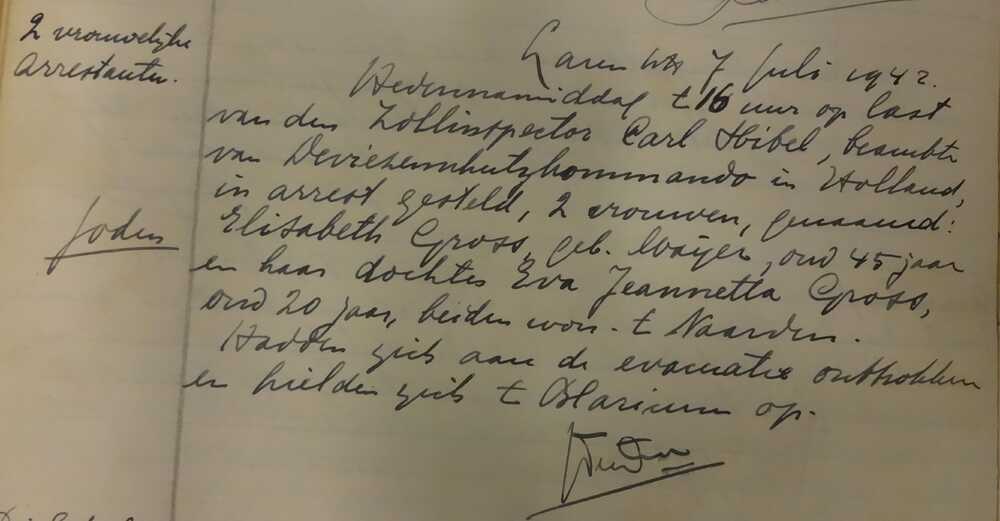 2 vrouwelijke
Arrestanten.
Laren 7 Juli 1942.
Hedennamiddag t 16 uur op last
van den Zollinspector Carl Hibel, beambte
van Deviezenschutzkommando in Holland,
in arrest gesteld, 2 vrouwen, genaamd:
Joden
Elisabeth Gross, geb. Waijer, oud 45 jaar
en haar dochter Eva Jeannetta Gross,
oud 20 jaar, beiden won. t Naarden.
Hadden zich aan de evacuatie onttrokken
en hielden zich t Blaricum op.